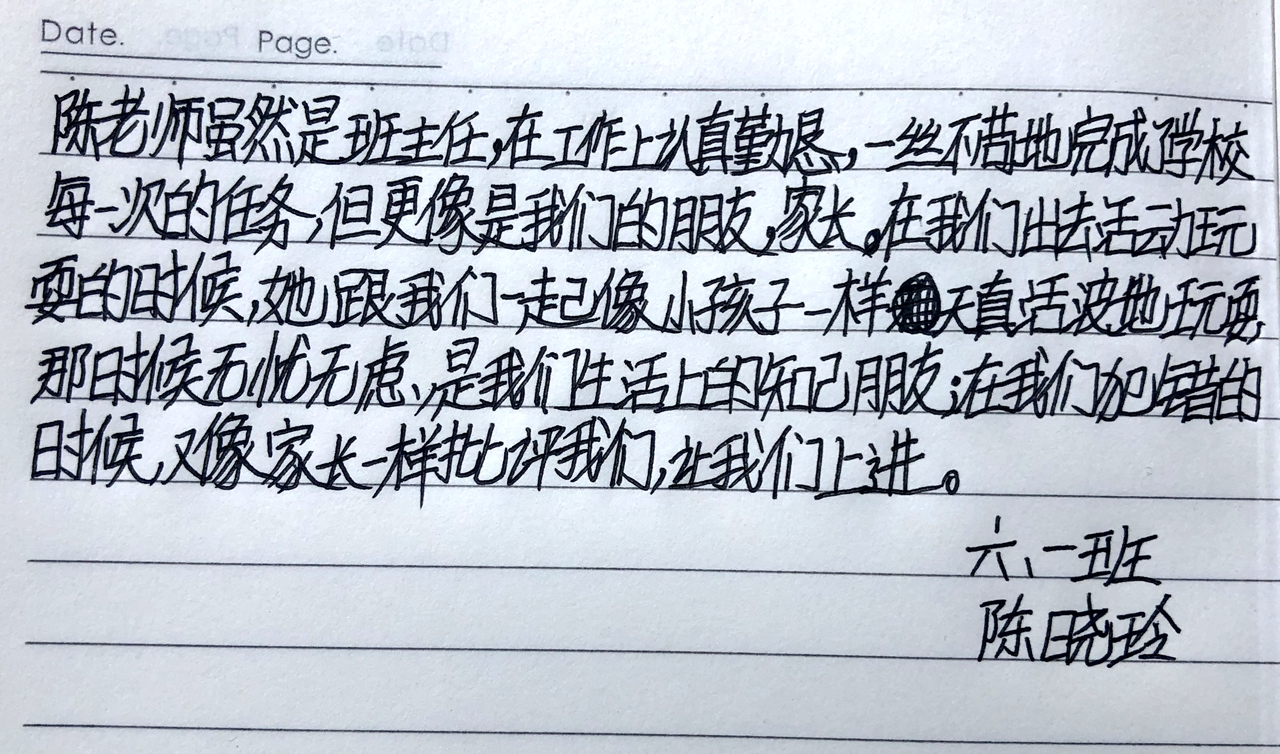 Date. Page.
陈老师虽然是班主任,在工作上认真勤恳,一丝不苟地完成了学校
每一次的任务,但更像是我们的朋友,家长。在我们出去活动玩
耍的时候,她跟我们一起像小孩子一样天真活波地玩耍
那时候无忧无虑、是我们生活上的知己朋友;在我们犯错的
时候,又像家长一样批评我们,让我们上进。
六、一班
陈晓玲